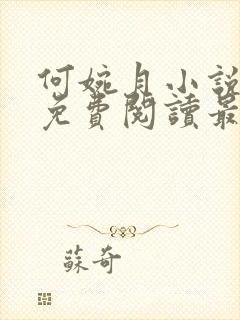 何婉月小說
免費閱讀最
蘇奇